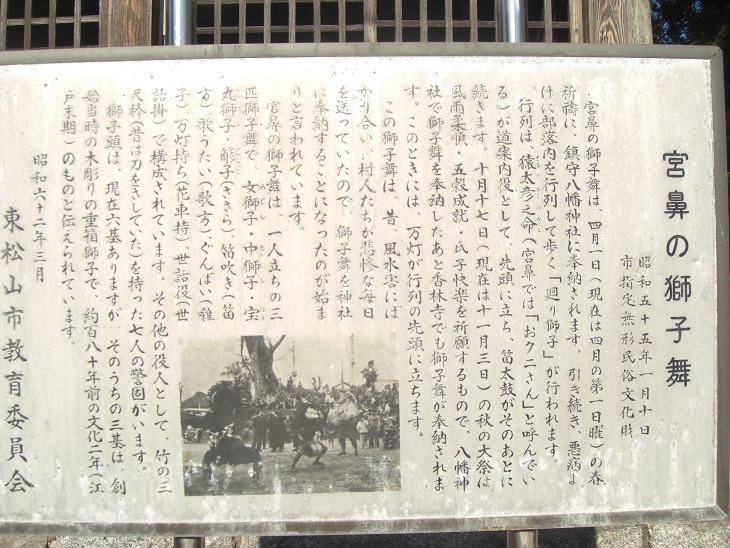 宮鼻の獅子舞
昭和五十五年一月十日
市指定無形民俗文化財
宮鼻の獅子舞は、四月一日(現在は四月の第一日曜)の春
祈祷に、鎮守八幡神社に奉納されます。引き続き、悪病よ
けに部落内を行列して歩く「廻り獅子」が行われます。
行列は、猿太彦之命(宮鼻では「おクニさん」と呼んでい
る)が道案内役として、先頭に立ち、笛太鼓がそのあとに
続きます。十月十七日(現在は十一月三日)の秋の大祭は
風雨柔順・五穀成就・氏子快楽を祈願するもので、八幡神
社で獅子舞を奉納したあと香林寺でも獅子舞が奉納されま
す。このときには、万灯が行列の先頭に立ちます。
この獅子舞は、昔、風水害にば
かり合い、村人たちが悲惨な毎日
を送っていたので、獅子舞を神社
に奉納することになったのが始ま
りと言われています。
宮鼻の獅子舞は、一人立ちの三
匹獅子舞で、女獅子・中獅子・宝
丸獅子・簓子(ささら)、笛吹き(笛
方)歌うたい(歌方)ぐんばい(雑
子)万灯持ち(花車持)、世話役(世
話掛)で構成されています。その他の役人として、竹の三
尺棒(昔は刀をさしていた)を持った七人の警固がいます。
獅子頭は、現在六基ありますが、そのうちの三基は、創
始当時の木彫りの重箱獅子で、約百八十年前の文化二年(江
戸末期)のものと伝えられています。
昭和六十二年三月
東松山市教育委員会